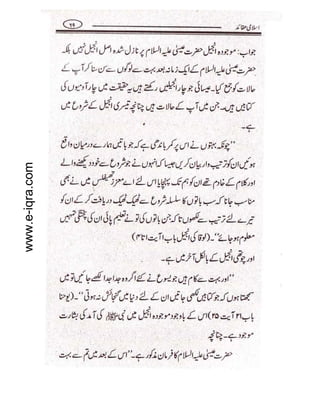 اسلامی عقائد
۱۹
جواب: موجودہ انجیل حضرت عیسیٰ علیہ السلام پر نازل شدہ اصل انجیل نہیں بلکہ
حضرت عیسیٰ علیہ السلام کے ایک زمانہ بعد بہت سے لوگوں سے سن سنا کر آپ کے
حالات کو جمع کیا۔ عیسائی جو چار انجیلیں رکھتے ہیں یہ حقیقت میں چار آدمیوں کی
کتابیں ہیں۔ جن میں آپ کے حالات ہیں چنانچہ تیسری انجیل کے شروع میں
ہے۔
"چونکہ بہتوں نے اس پر کمر باندھی ہے کہ جو باتیں ہمارے درمیان واقع
ہوئیں ان کو ترتیب وار بیان کریں جیسا کہ انہوں نے جو شروع سے خود دیکھنے والے
اور کلام کے خادم تھے ان کو ہم تک پہنچایا اس لئے اے معزز تھیفلس میں نے بھی
مناسب جانا کہ سب باتوں کا سلسلہ شروع سے ٹھیک ٹھیک دریافت کر کے ان کو
تیرے لئے ترتیب سے لکھوں تا کہ جن باتوں کی تو نے تعلیم پائی ان کی پختگی تمہیں
معلوم ہو جائے"۔ (لوقا کی انجیل باب ۱ آیت ۱ تا ۴)
اور چوتھی انجیل کے بالکل آخر میں ہے۔
"اور بہت سے کام ہیں جو یسوع نے کئے اگر وہ جدا جدا لکھے جائیں تو میں
سمجھتا ہوں کہ جو کتابیں لکھی جاتیں ان کے لئے دنیا میں گنجائش نہ ہوتی" (یوحنا
باب ۲۱ آیت ۲۵) اس کے باوجود موجودہ انجیل میں نبی ﷺ کی آمد کی بشارت
موجود ہے۔ چنانچہ
حضرت عیسیٰ علیہ السلام کا فرمان مذکور ہے۔ "اس کے بعد میں تم سے بہت
www.e-iqra.com